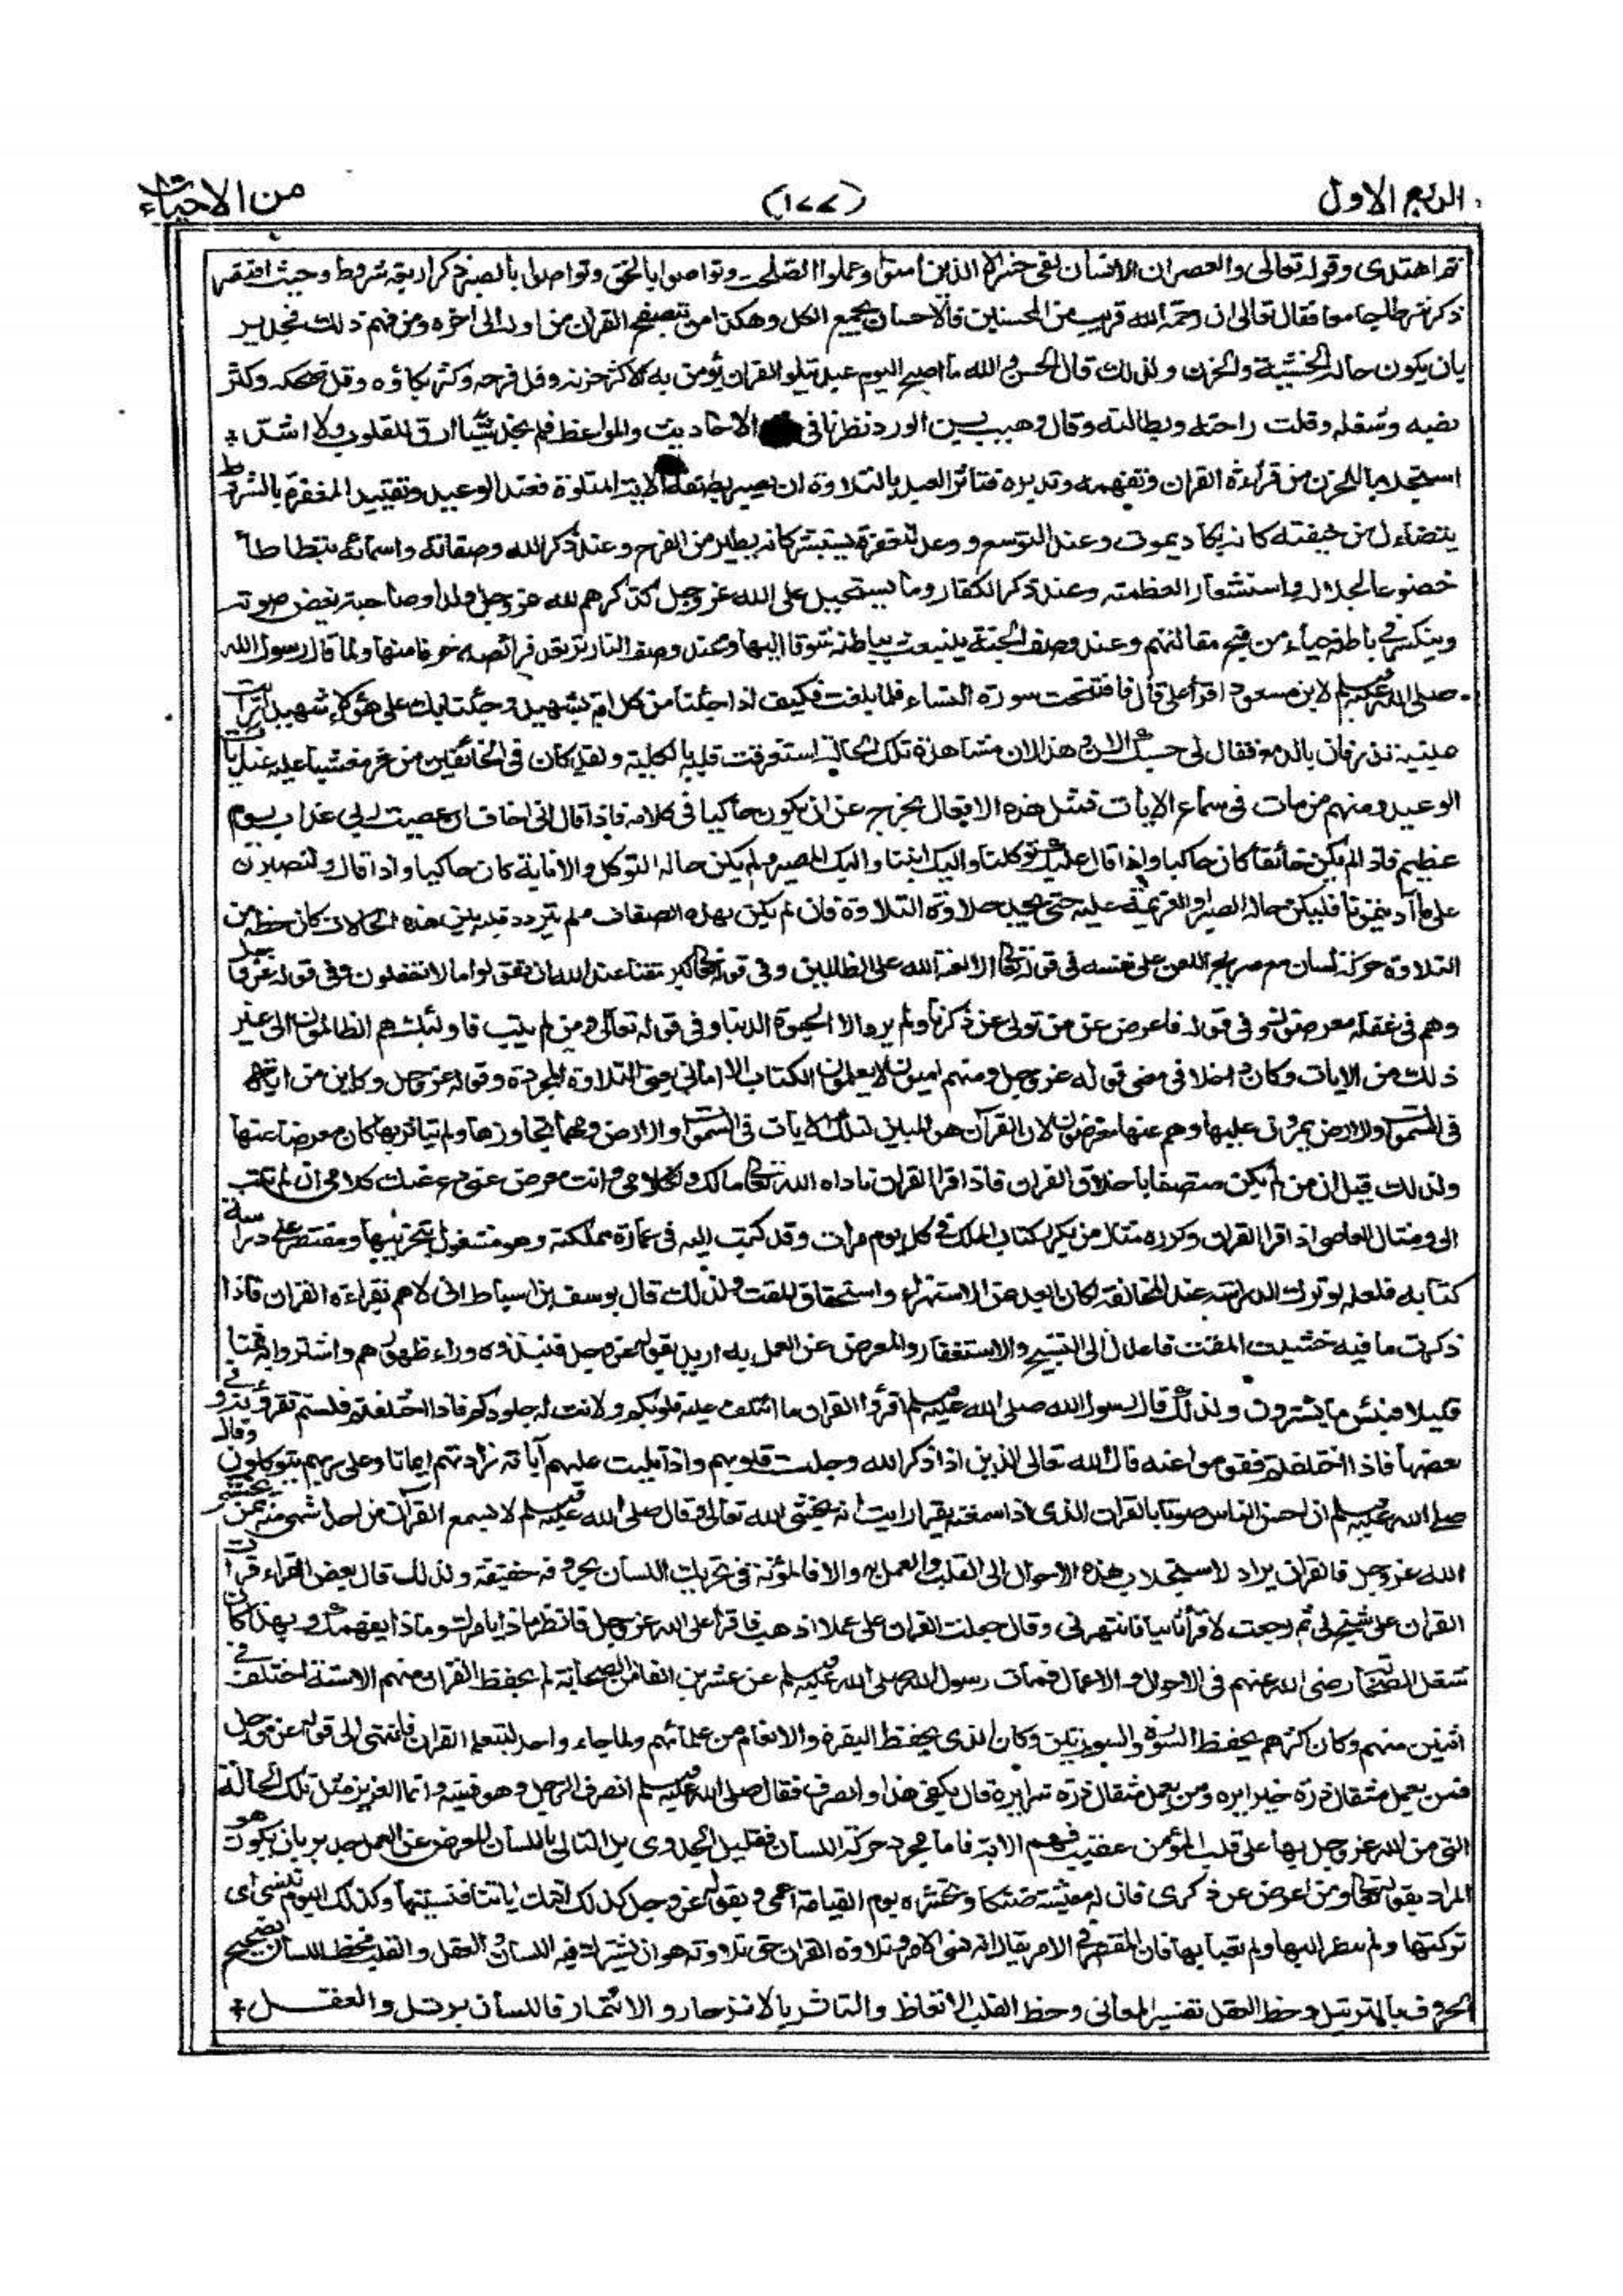 الربع الاول
(١٧٧)
من الاحياء
ثم اهتدى وقوله تعالى والعصر ان الانسان لفى خسر الا الذين امنوا وعملوا الصلحت وتواصوا بالحق وتواصوا بالصبر ذكر اربعة شروط وحيث اقتصر
ذكر شرطا جامعا فقال تعالى ان رحمة الله قريب من المحسنين فالاحسان يجمع الكل وهكذا من تصفح القران من اوله الى اخره ومن فهم ذلك فجدير
بان يكون حاله الخشية والحزن ولذلك قال الحسن والله ما اصبح اليوم عبد يتلو القران يؤمن به الا كثر حزنه وقل فرحه وكثر بكاؤه وقل ضحكه وكثر
نصبه وشغله وقلت راحته وبطالته وقال وهيب بن الورد نظرنا فى الاحاديث والمواعظ فلم نجد شيئا ارق للقلوب ولا اشد
استجلابا للحزن من قراءة القران وتفهمه وتدبره فتاثر العبد بالتلاوة ان يصير بصفة الاية المتلوة فعند الوعيد وتقييد المغفرة بالشروط
يتضاءل من خيفته كانه يكاد يموت وعند التوسع ووعد المغفرة يستبشر كانه يطير من الفرح وعند ذكر الله وصفاته واسمائه يتطاطأ
خضوعا لجلاله واستشعارا لعظمته وعند ذكر الكفار وما يستحيل على الله عز وجل كذكرهم لله عز وجل ولدا وصاحبة يغض صوته
وينكسر فى باطنه حياء من قبح مقالتهم وعند وصف الجنة ينبعث بباطنه شوقا اليها وعند وصف النار ترتعد فرائصه خوفا منها ولما قال رسول الله
صلى الله عليه وسلم لابن مسعود اقرأ على قال فافتتحت سورة النساء فلما بلغت فكيف اذا جئنا من كل امة بشهيد وجئنا بك على هؤلاء شهيدا رأيت
عينيه تذرفان بالدمع فقال لى حسبك الان وهذا لان مشاهدة تلك الحالة استغرقت قلبه بالكلية ولقد كان فى الخائفين من خر مغشيا عليه عند ايات
الوعيد ومنهم من مات فى سماع الايات فمثل هذه الاحوال يخرج عن ان يكون حاكيا فى كلامه فاذا قال انى اخاف ان عصيت ربى عذاب يوم
عظيم فاذا لم يكن خائفا كان حاكيا واذا قال عليك توكلنا واليك انبنا واليك المصير ولم يكن حاله التوكل والانابة كان حاكيا واذا قال ولنصبرن
على ما آذيتمونا فليكن حاله الصبر او العزيمة عليه حتى يجد حلاوة التلاوة فان لم يكن بهذه الصفات ولم يتردد قلبه بين هذه الحالات كان حظه من
التلاوة حركة لسان مع صريح اللعن على نفسه فى قوله تعالى الا لعنة الله على الظالمين وفى قوله تعالى كبر مقتا عند الله ان تقولوا ما لا تفعلون وفى قوله عز وجل
وهم فى غفلة معرضون وفى قوله فاعرض عن من تولى عن ذكرنا ولم يرد الا الحيوة الدنيا وفى قوله تعالى ومن لم يتب فاولئك هم الظالمون الى غير
ذلك من الايات وكان داخلا فى معنى قوله عز وجل ومنهم اميون لا يعلمون الكتاب الا امانى يعنى التلاوة المجردة وقوله عز وجل وكاين من اية
فى السموات والارض يمرون عليها وهم عنها معرضون لان القرآن هو المبين لتلك الايات فى السموات والارض ومهما تجاوزها ولم يتاثر بها كان معرضا عنها
ولذلك قيل ان من لم يكن متصفا باخلاق القران فاذا قرا القران ناداه الله تعالى مالك ولكلامى وانت معرض عنى دع عنك كلامى ان لم تتب
الى ومثال العاصى اذا قرا القران وكرره مثال من يكرر كتاب الملك فى كل يوم مرات وقد كتب اليه فى عمارة مملكته وهو مشغول بتخريبها ومقتصر على دراسة
كتابه فلعله لو ترك الدراسة عند المخالفة لكان ابعد من الاستهزاء واستحقاق المقت ولذلك قال يوسف بن اسباط انى لاهم بقراءة القران فاذا
ذكرت ما فيه خشيت المقت فاعدل الى التسبيح والاستغفار والمعرض عن العمل به اريد بقوله عز وجل فنبذوه وراء ظهورهم واشتروا به ثمنا
قليلا فبئس ما يشترون ولذلك قال رسول الله صلى الله عليه وسلم اقرؤا القران ما ائتلفت عليه قلوبكم ولانت له جلودكم فاذا اختلفتم فلستم تقرؤنه وفى
بعضها فاذا اختلفتم فقوموا عنه قال الله تعالى الذين اذا ذكر الله وجلت قلوبهم واذا تليت عليهم آياته زادتهم ايمانا وعلى ربهم يتوكلون وقال
صلى الله عليه وسلم ان احسن الناس صوتا بالقران الذى اذا سمعته يقرا رايت انه يخشى الله تعالى وقال صلى الله عليه وسلم لا يسمع القرآن من احد اشهى منه ممن يخشى
الله عز وجل فالقران يراد لاستجلاب هذه الاحوال الى القلب والعمل به والا فالمؤنة فى تحريك اللسان بحروفه خفيفة ولذلك قال بعض القراء قرأت
القران على شيخ لى ثم رجعت لاقرأ ثانيا فانتهرنى وقال جعلت القران على عملا اذهب فاقرا على الله عز وجل فانظر ماذا يامرك وماذا يفهمك وبهذا كان
شغل الصحابة رضى الله عنهم فى الاحوال والاعمال فمات رسول الله صلى الله عليه وسلم عن عشرين الفا من الصحابة لم يحفظ القران منهم الا ستة اختلف فى
اثنين منهم وكان اكثرهم يحفظ السورة والسورتين وكان الذى يحفظ البقرة والانعام من علمائهم ولما جاء واحد ليتعلم القران فانتهى الى قوله عز وجل
فمن يعمل مثقال ذرة خيرا يره ومن يعمل مثقال ذرة شرا يره قال يكفى هذا وانصرف فقال صلى الله عليه وسلم انصرف الرجل وهو فقيه وانما العزيز مثل تلك الحالة
التى من الله عز وجل بها على قلب المؤمن عقيب فهم الاية فاما مجرد حركة اللسان فقليل الجدوى بل التالى باللسان المعرض عن العمل جدير بان يكون هو
المراد بقوله تعالى ومن اعرض عن ذكرى فان له معيشة ضنكا ونحشره يوم القيامة اعمى وبقوله عز وجل كذلك اتتك آياتنا فنسيتها وكذلك اليوم تنسى اى
تركتها ولم تنظر اليها ولم تعبأ بها فان المقصر فى الامر يقال انه نسى الامر وتلاوة القران حق تلاوته هو ان يشترك فيه اللسان والعقل والقلب فحظ اللسان تصحيح
الحروف بالترتيل وحظ العقل تفسير المعانى وحظ القلب الاتعاظ والتاثر بالانزجار والائتمار فاللسان يرتل والعقل